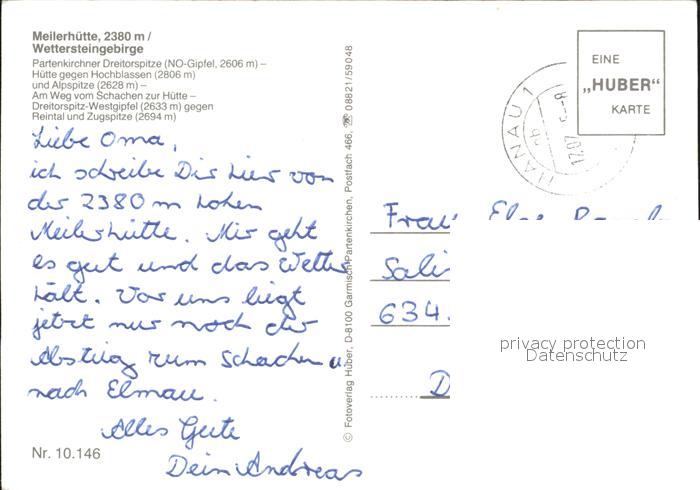 Meilerhütte, 2380 m /
Wettersteingebirge
Partenkirchner Dreitorspitze (NO-Gipfel, 2606 m) –
Hütte gegen Hochblassen (2806 m)
und Alpspitze (2628 m) –
Am Weg vom Schachen zur Hütte –
Dreitorspitz-Westgipfel (2633 m) gegen
Reintal und Zugspitze (2694 m)
Liebe Oma,
ich schreibe Dir hier von
der 2380 m hohen
Meilerhütte. Mir geht
es gut und das Wetter
hält. Vor uns liegt
jetzt nur noch der
Abstieg zum Schachen u
nach Elmau.
Alles Gute
Dein Andreas
Nr. 10.146
© Fotoverlag Huber, D-8100 Garmisch-Partenkirchen, Postfach 466, ☎ 08821/59048
EINE
„HUBER“
KARTE
HANAU 1
Frau
634.
D
privacy protection
Datenschutz